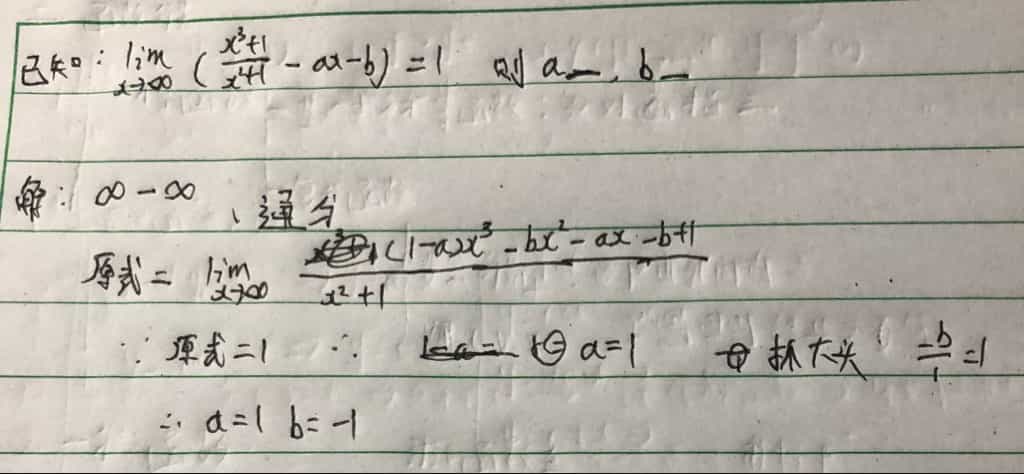 已知: lim x→∞ (x³+1/x²+1 - ax-b) = 1 则 a_ , b_
解: ∞-∞ 、通分
原式 = lim x→∞ (1-a)x³-bx²-ax-b+1 / x²+1
∵ 原式=1 ∴ a=1 抓大头 -b/1 =1
∴ a=1 b=-1